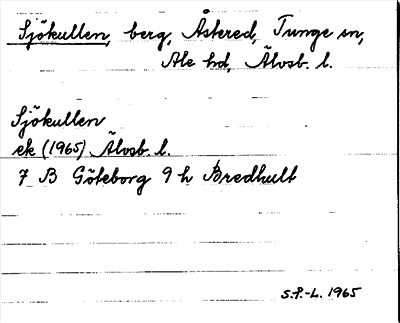 Sjökullen, berg, Åstered, Tunge sn,
Ale hd, Älvsb. l.
Sjökullen
ek (1965) Älvsb. l.
7 B Göteborg 9 h Bredhult
S.P.-L. 1965